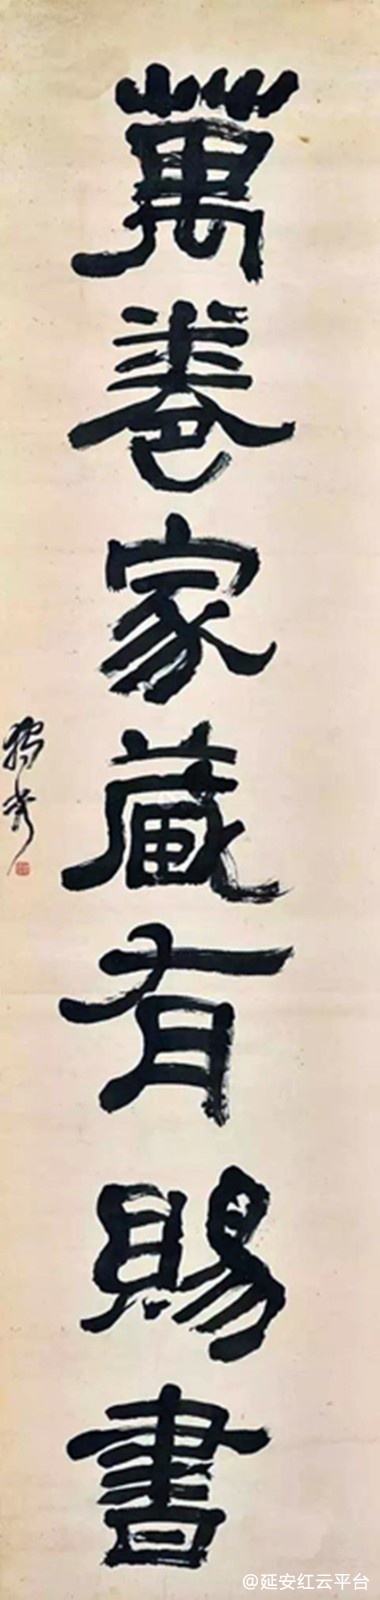 萬卷家藏有賜書
獨秀
@延安红云平台